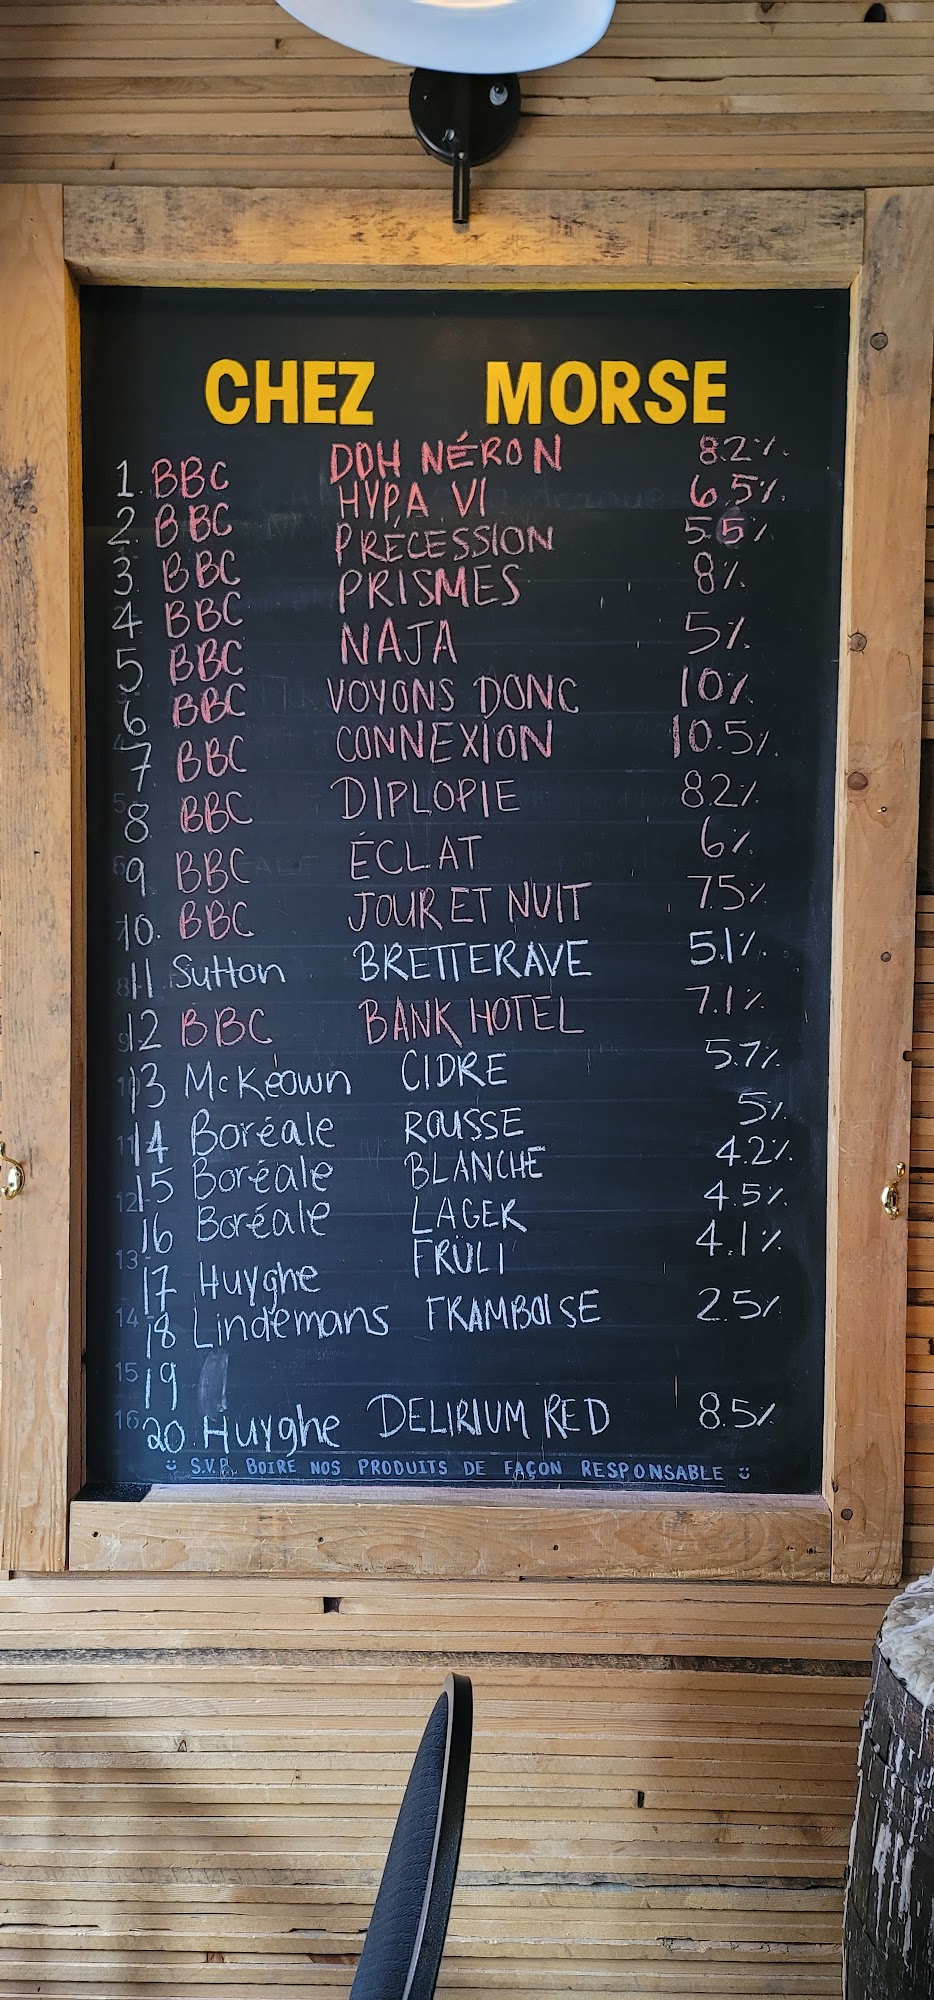 CHEZ MORSE
1. BBC DDH NÉRON 8.2%
2. BBC HYPA VI 6.5%
3. BBC PRÉCESSION 5.5%
4. BBC PRISMES 8%
5 BBC NAJA 5%
6 BBC VOYONS DONC 10%
7 BBC CONNEXION 10.5%
8. BBC DIPLOPIE 8.2%
9. BBC ÉCLAT 6%
10. BBC JOUR ET NUIT 7.5%
11 Sutton BRETTERAVE 5.1%
12 BBC BANK HOTEL 7.1%
13 McKeown CIDRE 5.7%
14 Boréale ROUSSE 5%
15 Boréale BLANCHE 4.2%
16 Boréale LAGER 4.5%
17 Huyghe FRÜLI 4.1%
18 Lindemans FRAMBOISE 2.5%
19
20. Huyghe DELIRIUM RED 8.5%
S.V.P. BOIRE NOS PRODUITS DE FAÇON RESPONSABLE